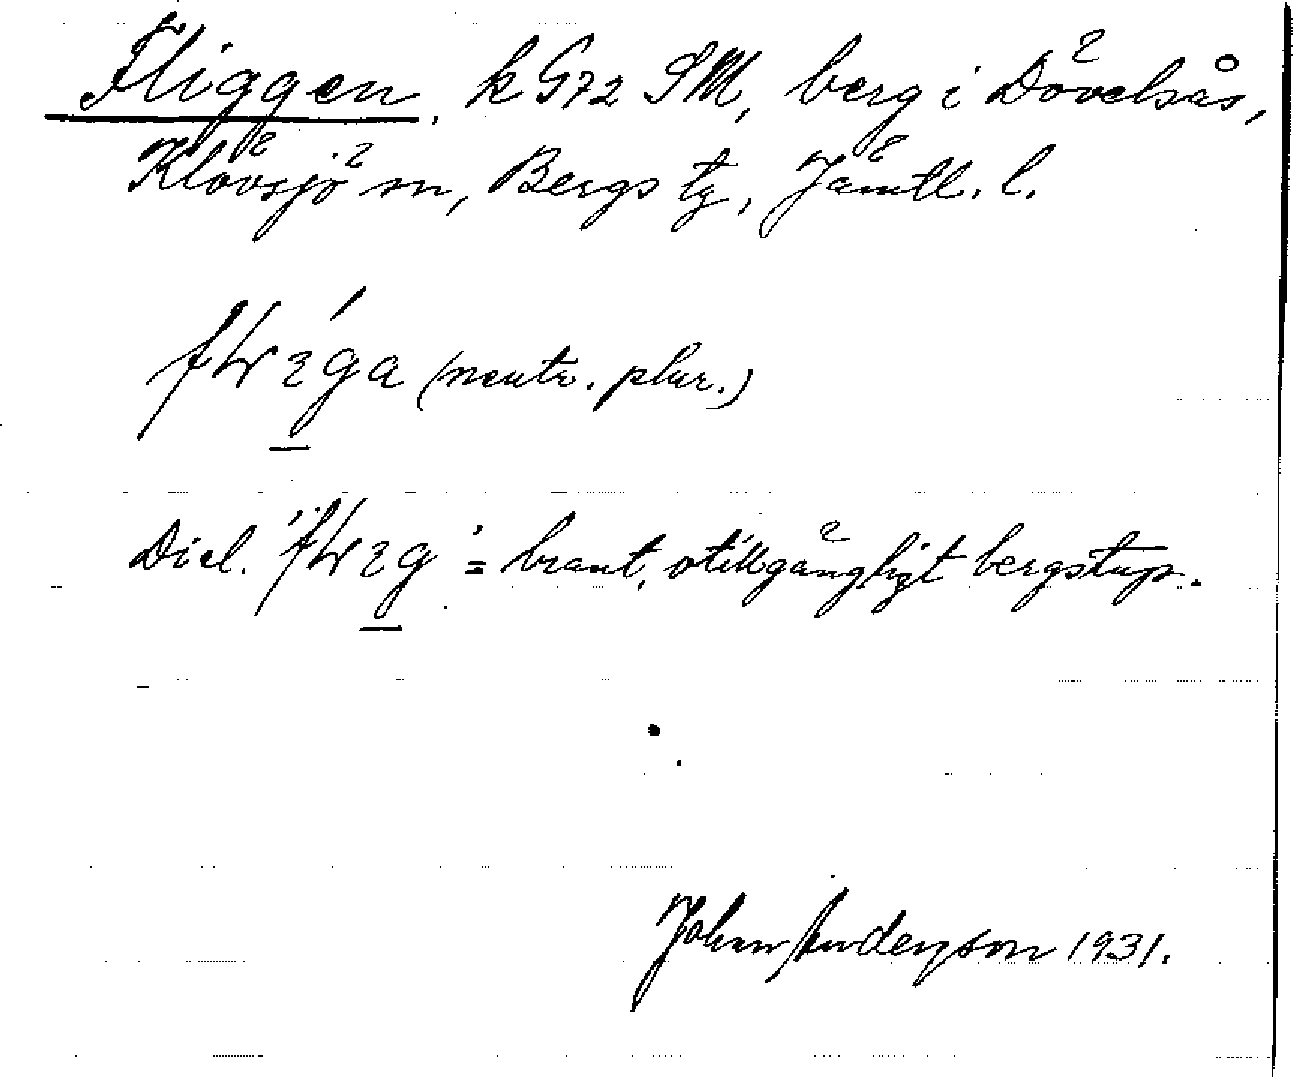 Fliggen, k G72 SM, berg i Dövelsås,
Klövsjö sn, Bergs tg, Jämtl. l.
(neutr. plur.)
Dial. = brant, otillgängligt bergstup.
Johan Anderson 1931.